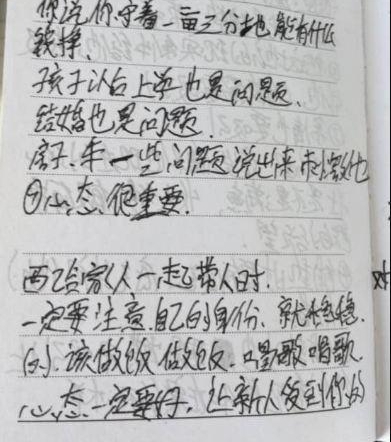 你说你守着一亩三分地能有什么
钱挣.
孩子以后上学也是问题.
结婚也是问题.
房子.车一些问题说出来刺激他
④心态很重要.
两公家人一起带人时.
一定要注意.自己的身份.就
的.该做饭做饭.唱歌唱歌
心态一定要好.让新人受到你的